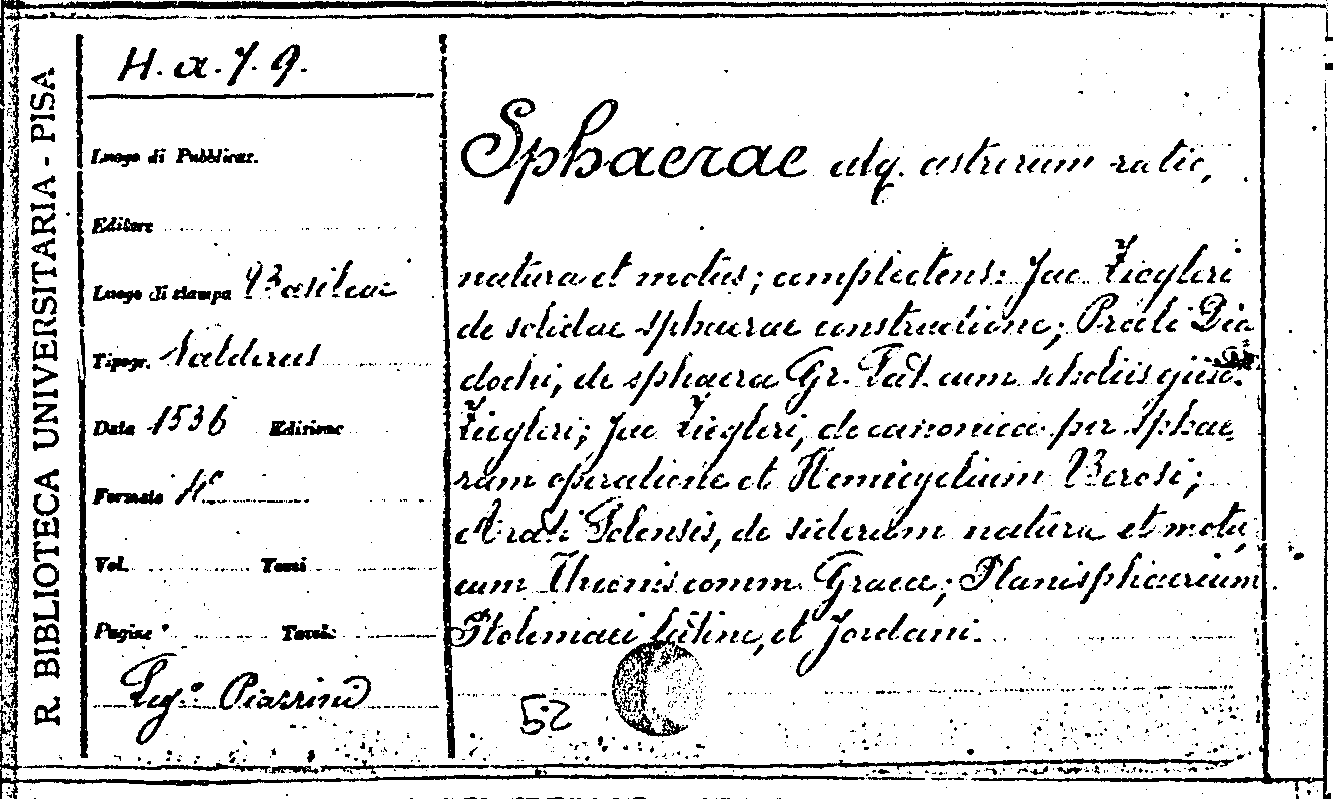 R. BIBLIOTECA UNIVERSITARIA - PISA
H. a. 7. 9.
Luogo di Pubblicaz.
Editore
Luogo di stampa Basileae
Tipogr. Valderus
Data 1536 Edizione
Formato 4°
Vol. Tomi
Pagine Tavole
Leg.° Piazzini
Sphaerae atq. astrorum ratio,
natura et motus; complectens: Jac Ziegleri
de solidae sphaerae constructione; Procli Dia
dochi, de sphaera Gr. Lat. cum scholiis
Ziegleri; Jac Ziegleri, de canonica per sphae
ram operatione et Hemicyclium Berosi;
Arati Solensis, de siderum natura et motu,
cum Theonis comm. Graece; Planisphaerium
Ptolemaei latine, et Jordani.
52